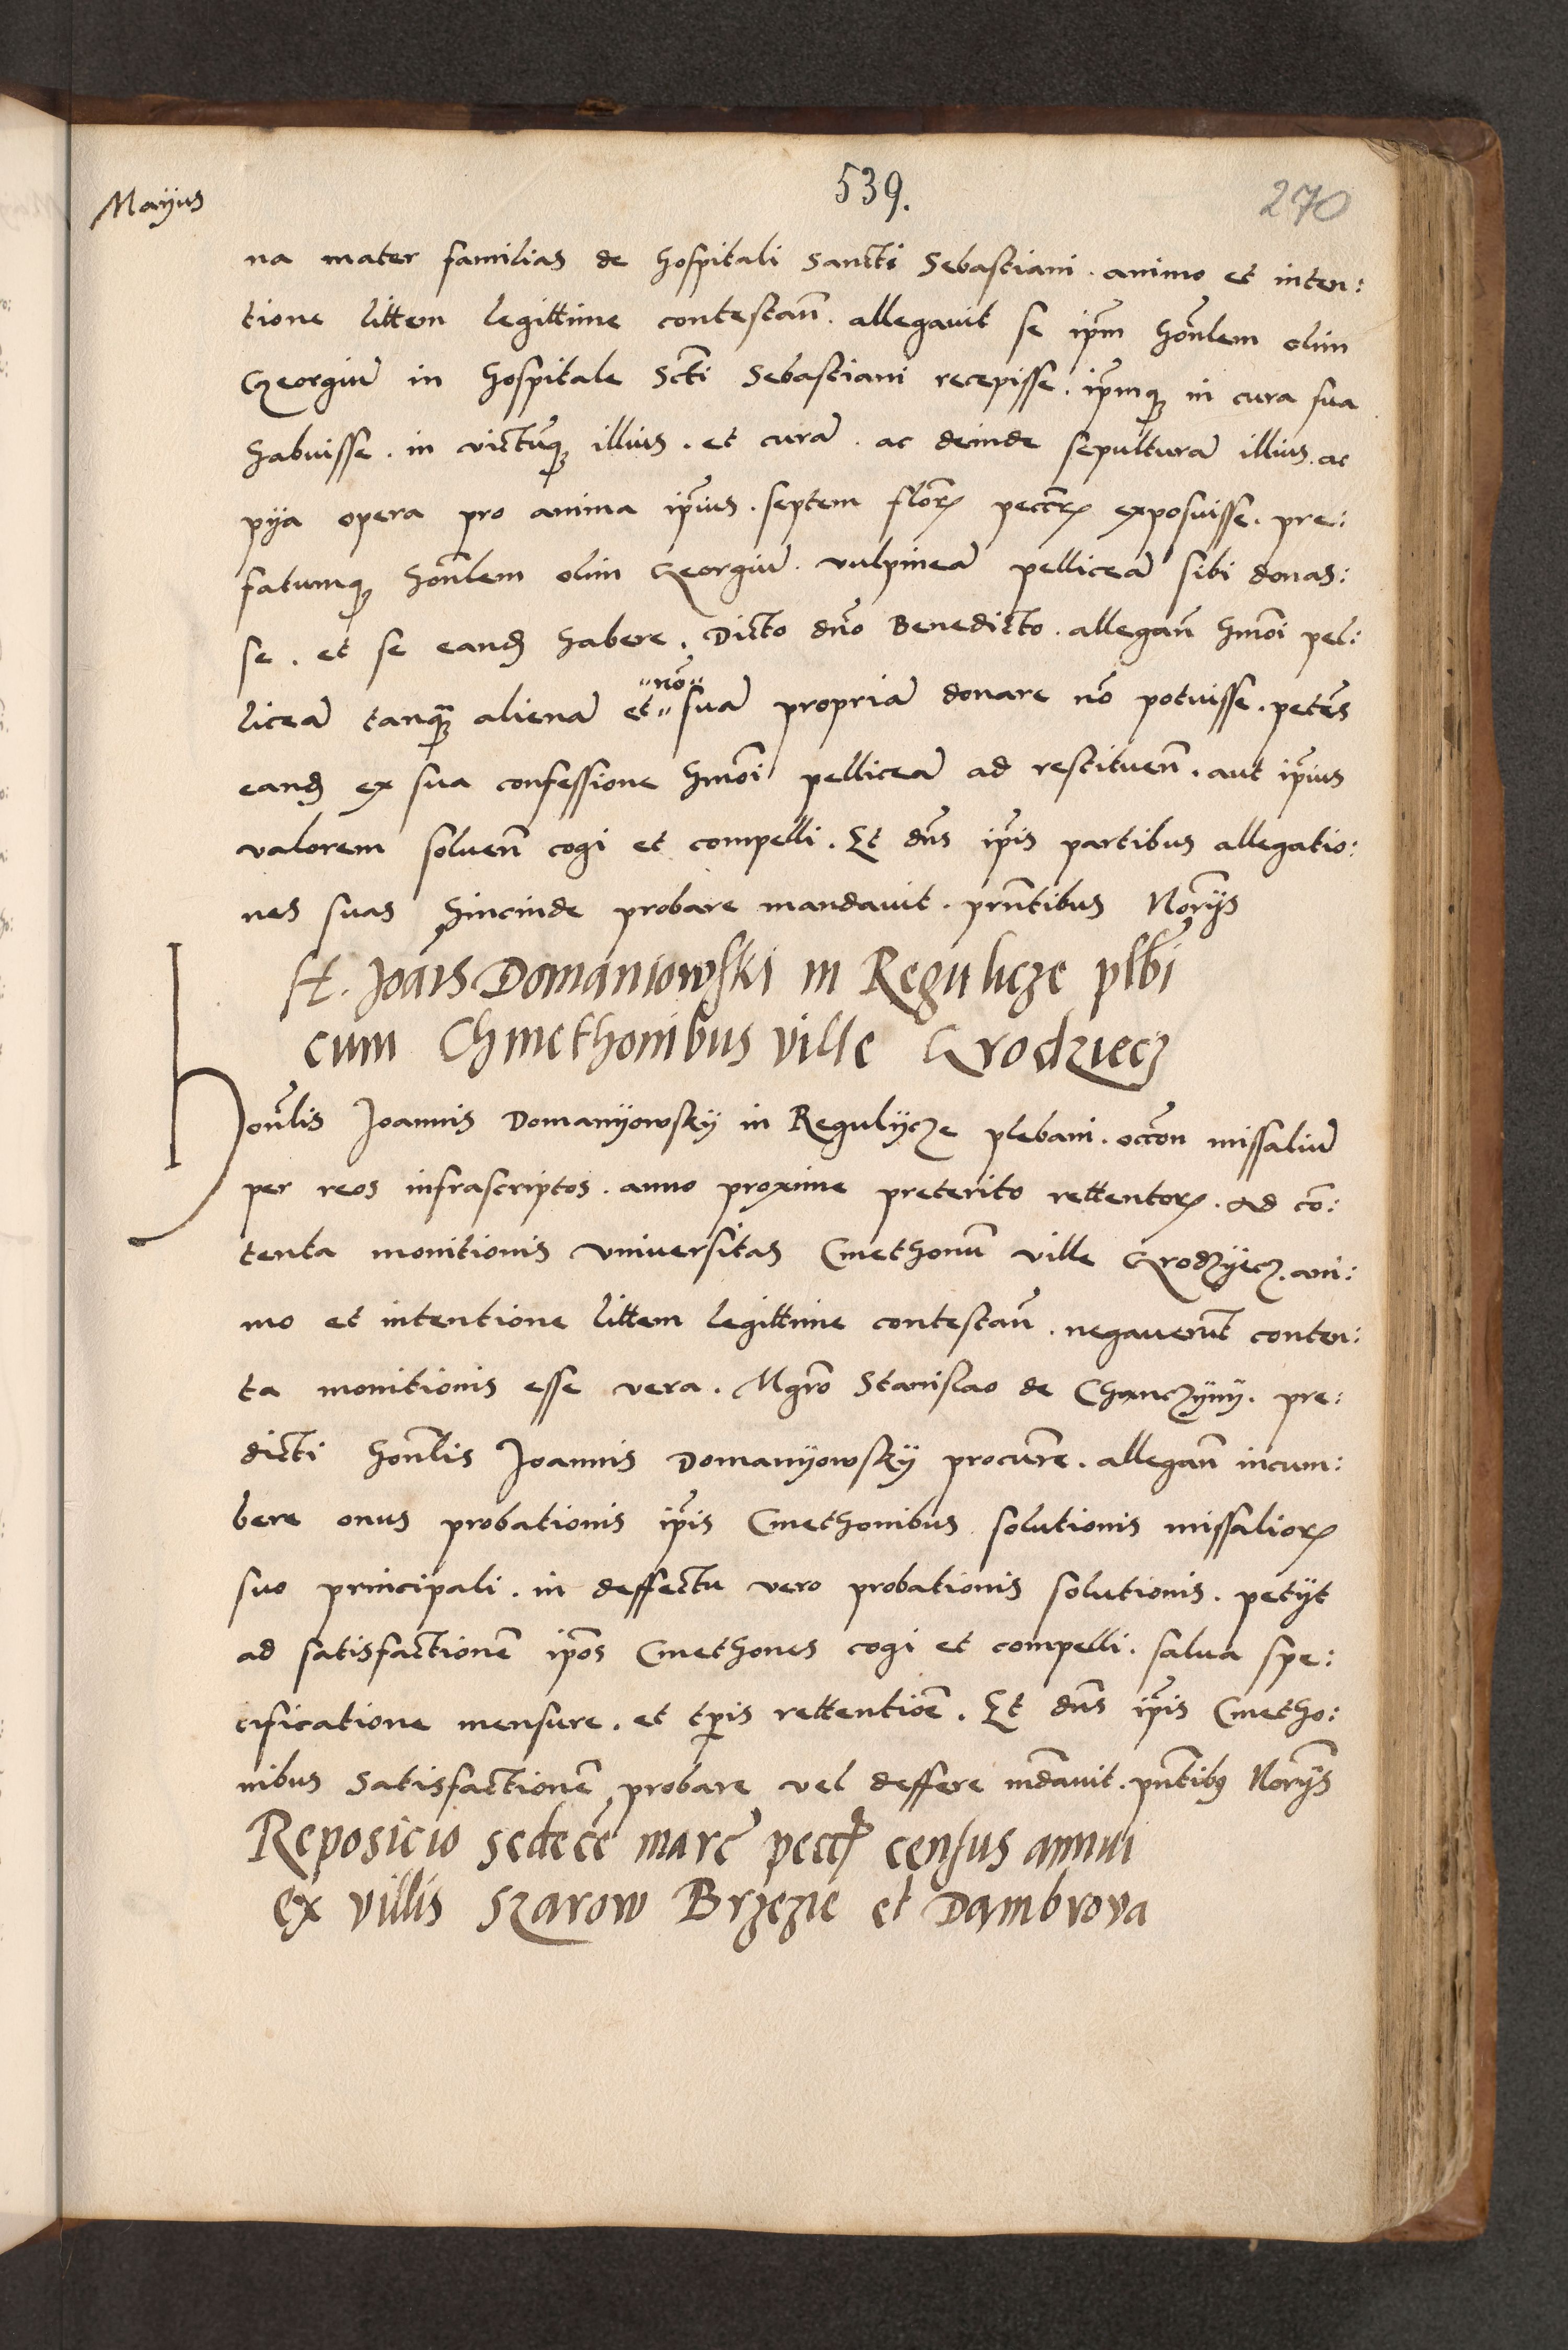 Mayus
539.
270
na mater familias de hospitali Sancti Sebastiani. animo et inten:
tione littem legittime contestañ. allegavit se ip̃m hoñlem olim
Georgiũ in hospitale Scti Sebastiani recepisse. ip̃mq; in cura sua
habuisse. in victũq; illius. et curã. ac deinde sepulturã illius. ac
pya opera pro anima ip̃ius. septem floꝝ peccꝝ exposuisse. pre:
fatumq; hoñlem olim Georgiũ. vulpineã pelliceã sibi donas:
se. et se eand habere. Dicto dño Benedicto. allegañ hmõi pel:
"nõ"
liceã tanq̃ alienã et "suã propriã donare nõ potuisse. petẽs
eand ex sua confessione hmõi pelliceã ad restitueñ. aut ip̃ius
valorem solueñ cogi et compelli. Et dñs ip̃is partibus allegatio:
nes suas hincinde probare mandavit. prñtibus Norijs
ff. Joãis Domaniowski in Regulicze plbñi
cum Chmethonibus ville Grodziecz
Hoñlis Joannis Domanyowsky in Regulycze plebani. occõn missaliũ
per reos infrascriptos. anno proxime preterito rettentoꝝ. ad cõ:
tenta monitionis universitas Cmethonũ ville Grodzyecz. ani:
mo et intentione littem legittime contestañ. negaverũt conten:
ta monitionis esse vera. Mgrõ Stanislao de Chanczyny. pre:
dicti hoñlis Joannis Domanyowsky procurẽ. allegañ incum:
bere onus probationis ip̃is Cmethonibus solutionis missalioꝝ
suo principali. in deffectu vero probationis solutionis. petijt
ad satisfactionẽ ip̃os Cmethones cogi et compelli. salva spe:
cificatione mensure. et tp̃is rettentiõe. Et dñs ip̃is Cmetho:
nibus Satisfactionẽ probare vel deffere mdavit. pñtibꝯ Norijs
Reposicio sedecẽ marc̃ peccꝝ census annui
ex villis Szarow Brzezie et Dambrova